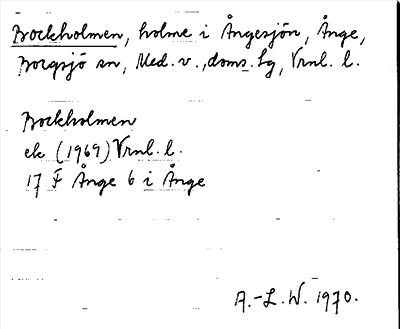 Bockholmen, holme i Ångesjön, Ånge,
Borgsjö sn, Med. v., doms. lg, Vrnl. l.
Bockholmen
ek (1969) Vrnl. l.
17 F Ånge 6 i Ånge
A.-L. W. 1970.